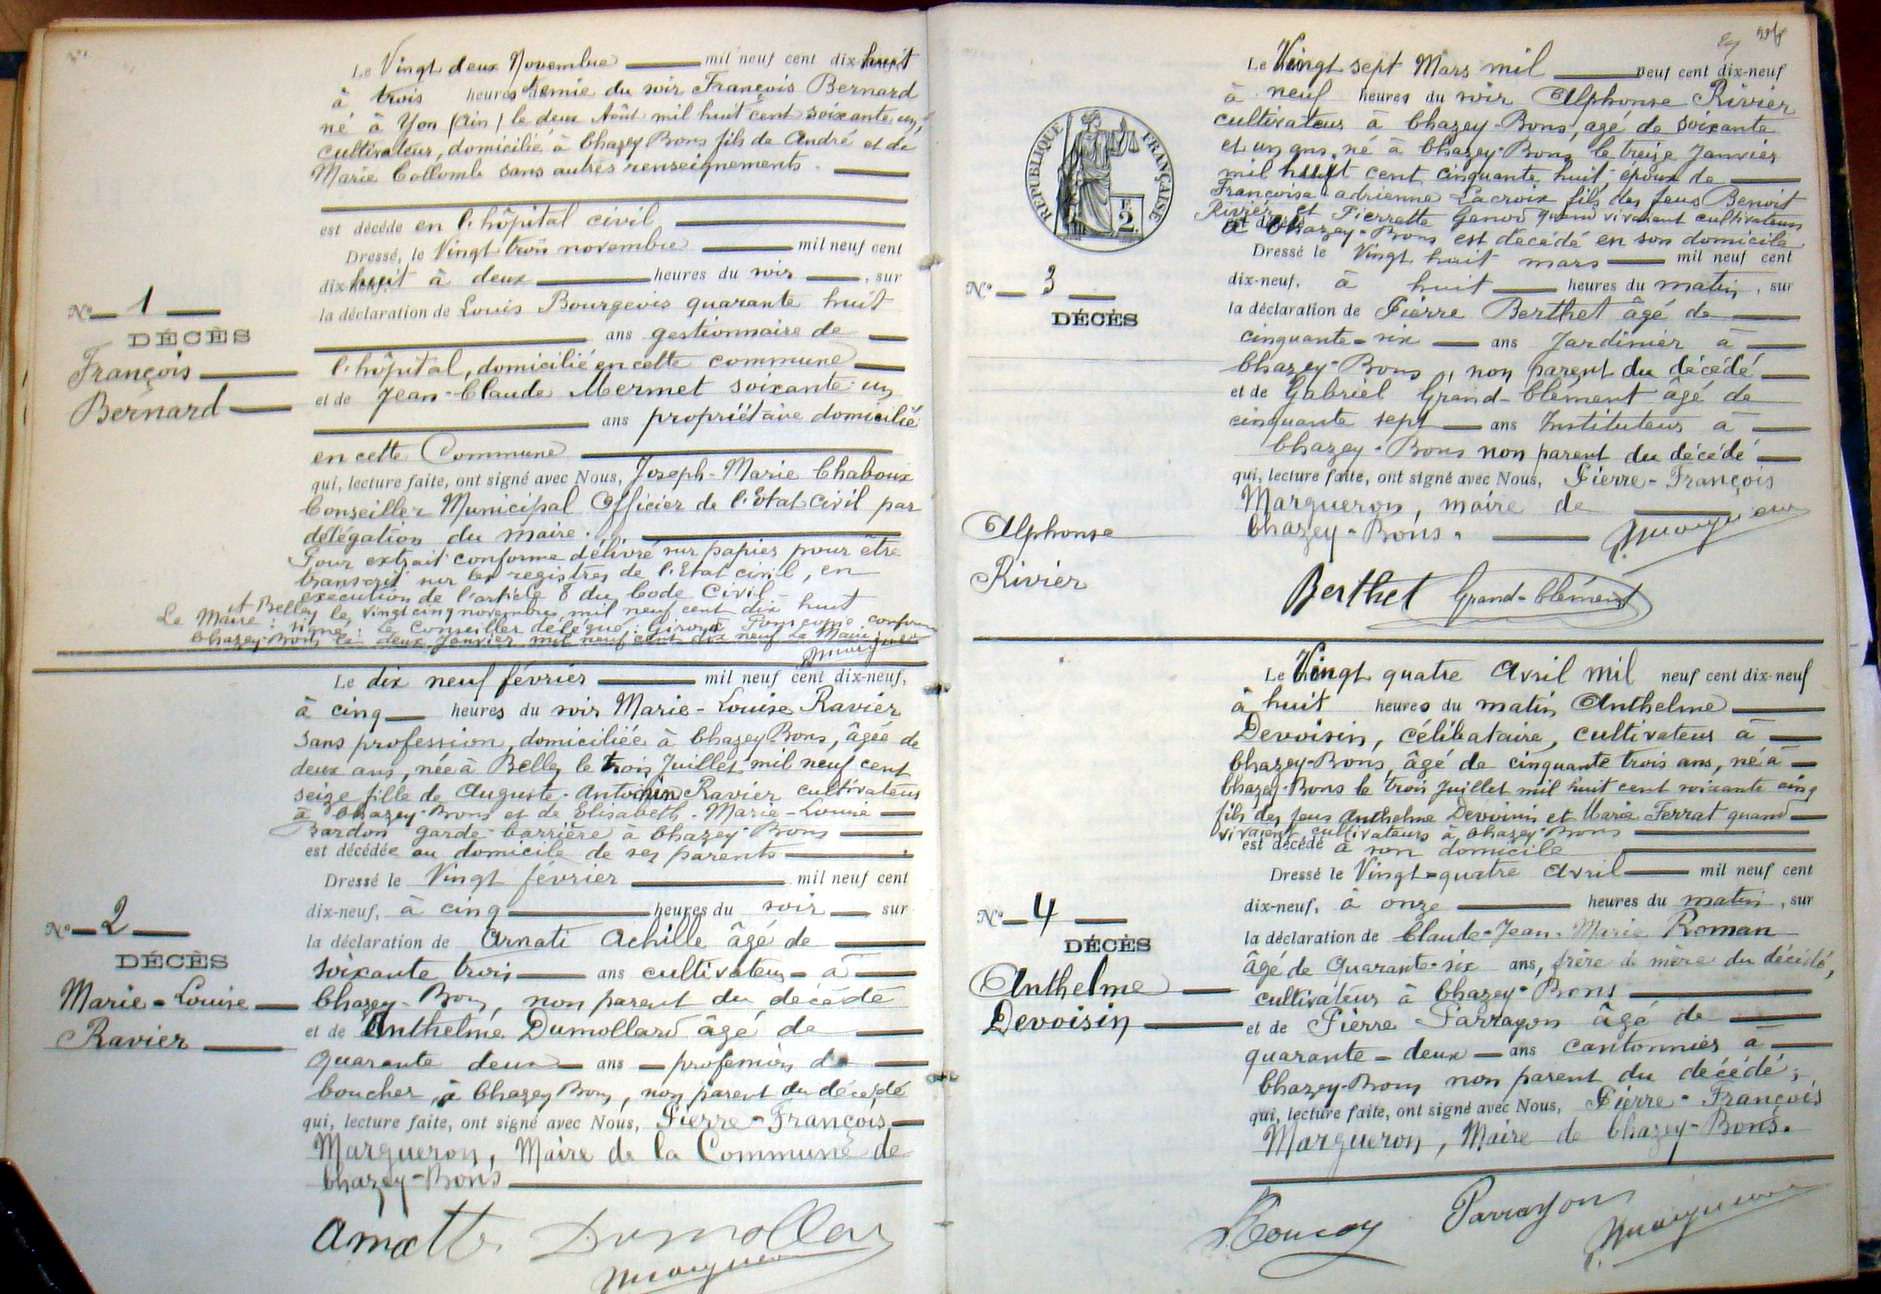 Le Vingt deux Novembre mil neuf cent dix-huit
à trois heures demie du soir François Bernard
né à Yon (Ain) le deux Août mil huit cent soixante un,
cultivateur, domicilié à Chazey Bons fils de André et de
Marie Collomb sans autres renseignements.
est décédé en l'hôpital civil
Dressé, le Vingt trois novembre mil neuf cent
dix huit à deux heures du soir, sur
la déclaration de Louis Bourgeois quarante huit
ans gestionnaire de
l'hôpital, domicilié en cette commune
et de Jean-Claude Mermet soixante un
ans propriétaire domicilié
en cette Commune
qui, lecture faite, ont signé avec Nous, Joseph-Marie Chaboux
Conseiller Municipal Officier de l'Etat Civil par
délégation du maire.
Pour extrait conforme délivré sur papier pour être
transcrit sur les registres de l'Etat civil, en
execution de l'article 8 du Code Civil
A Belley, le vingt cinq novembre mil neuf cent dix huit
Le Maire : signé : le Conseiller délégué : Pour copie conforme
Chazey-Bons le deux Janvier mil neuf cent dix neuf Le Maire
N° 1
DÉCÈS
François
Bernard
Le dix neuf février mil neuf cent dix-neuf,
à cinq heures du soir Marie-Louise Ravier
sans profession, domiciliée à Chazey Bons, âgée de
deux ans, née à Belley le trois Juillet mil neuf cent
seize fille de Auguste-Antonin Ravier cultivateur
à Chazey-Bons et de Elisabeth-Marie-Louise
Bardon garde-barrière à Chazey-Bons
est décédée au domicile de ses parents
Dressé le Vingt février mil neuf cent
dix-neuf, à cinq heures du soir sur
la déclaration de Arnati Achille âgé de
soixante trois ans cultivateur à
Chazey-Bons, non parent du décédé
et de Anthelme Dumollard âgé de
quarante deux ans profession de
boucher, à Chazey Bons, non parent du décédé
qui, lecture faite, ont signé avec Nous, Pierre-François
Margueron, Maire de la Commune de
Chazey-Bons
N° 2
DÉCÈS
Marie-Louise
Ravier
Dumollard
Margueron
Le Vingt sept Mars mil neuf cent dix-neuf
à neuf heures du soir Alphonse Rivier
cultivateur à Chazey-Bons, agé de soixante
et un ans, né à Chazey-Bons le treize Janvier
mil huit cent cinquante huit époux de
Françoise adrienne Lacroix fils des feus Benoit
Rivier et Pierrette Genod quand vivaient cultivateurs
à Chazey-Bons est décédé en son domicile
Dressé le Vingt huit mars mil neuf cent
dix-neuf, à huit heures du matin, sur
la déclaration de Pierre Berthet âgé de
cinquante-six ans Jardinier à
Chazey-Bons, non parent du décédé
et de Gabriel Grand-Clément âgé de
cinquante sept ans Instituteur à
Chazey-Bons non parent du décédé
qui, lecture faite, ont signé avec Nous, Pierre-François
Margueron, maire de
Chazey-Bons.
Margueron
Berthet Grand-Clément
RÉPUBLIQUE FRANÇAISE
2
N° 3
DÉCÈS
Alphonse
Rivier
Le Vingt quatre Avril mil neuf cent dix-neuf
à huit heures du matin Anthelme
Devoisin, célibataire, cultivateur à
Chazey-Bons, âgé de cinquante trois ans, né à
Chazey-Bons le trois Juillet mil huit cent soixante cinq
fils des feus Anthelme Devoisin et Marie Ferrat quand
vivaient cultivateurs à Chazey-Bons
est décédé à son domicile
Dressé le Vingt-quatre Avril mil neuf cent
dix-neuf, à onze heures du matin, sur
la déclaration de Claude-Jean-Marie Roman
âgé de Quarante-six ans, frère de mère du décédé,
cultivateur à Chazey-Bons
et de Pierre Parrayon âgé de
quarante-deux ans cantonnier à
Chazey-Bons non parent du décédé;
qui, lecture faite, ont signé avec Nous, Pierre-François
Margueron, Maire de Chazey-Bons.
N° 4
DÉCÈS
Anthelme
Devoisin
Parrayon
Margueron